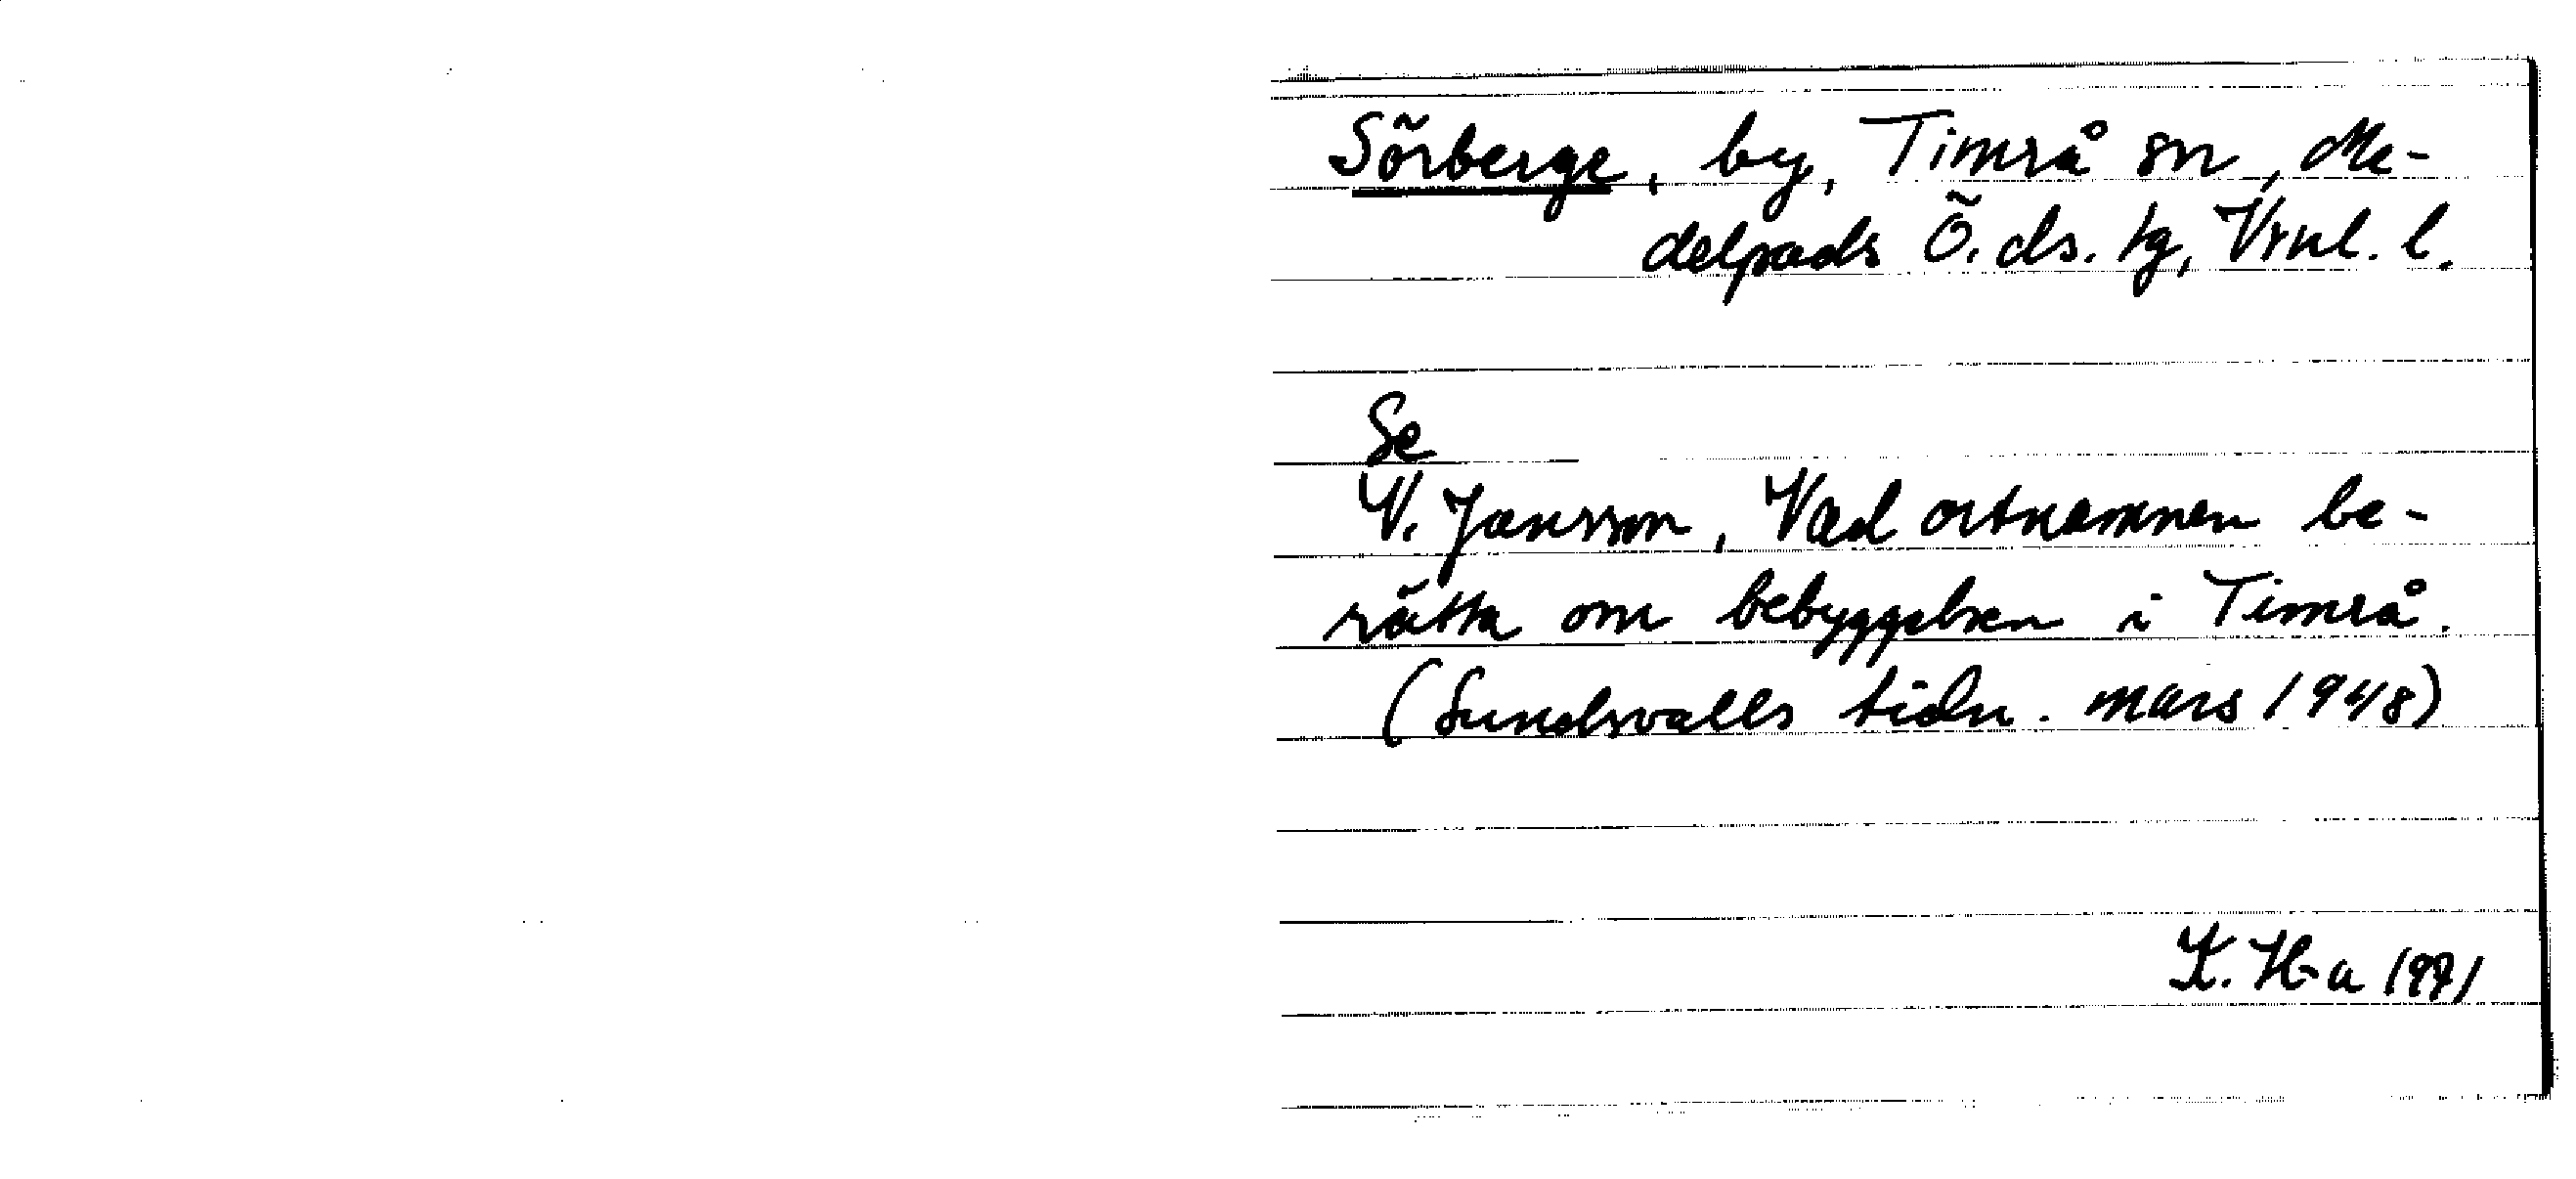 Sörberge, by, Timrå sn, Me-
delpads Ö. ds. tg, Vrnl. l.
Se
V. Jansson, Vad ortnamnen be-
rätta om bebyggelsen i Timrå.
(Sundsvalls tidn. mars 1948)
K. H-a 1971